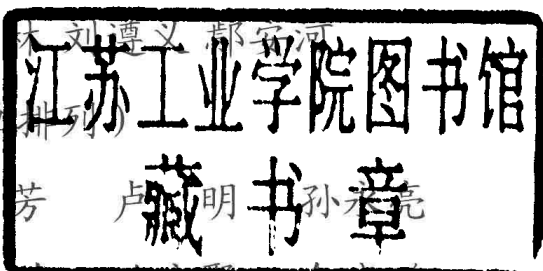 林 刘遵义 鄢安河
江苏工业学院图书馆
排列）
藏书章
芳 卢 明 孙永亮